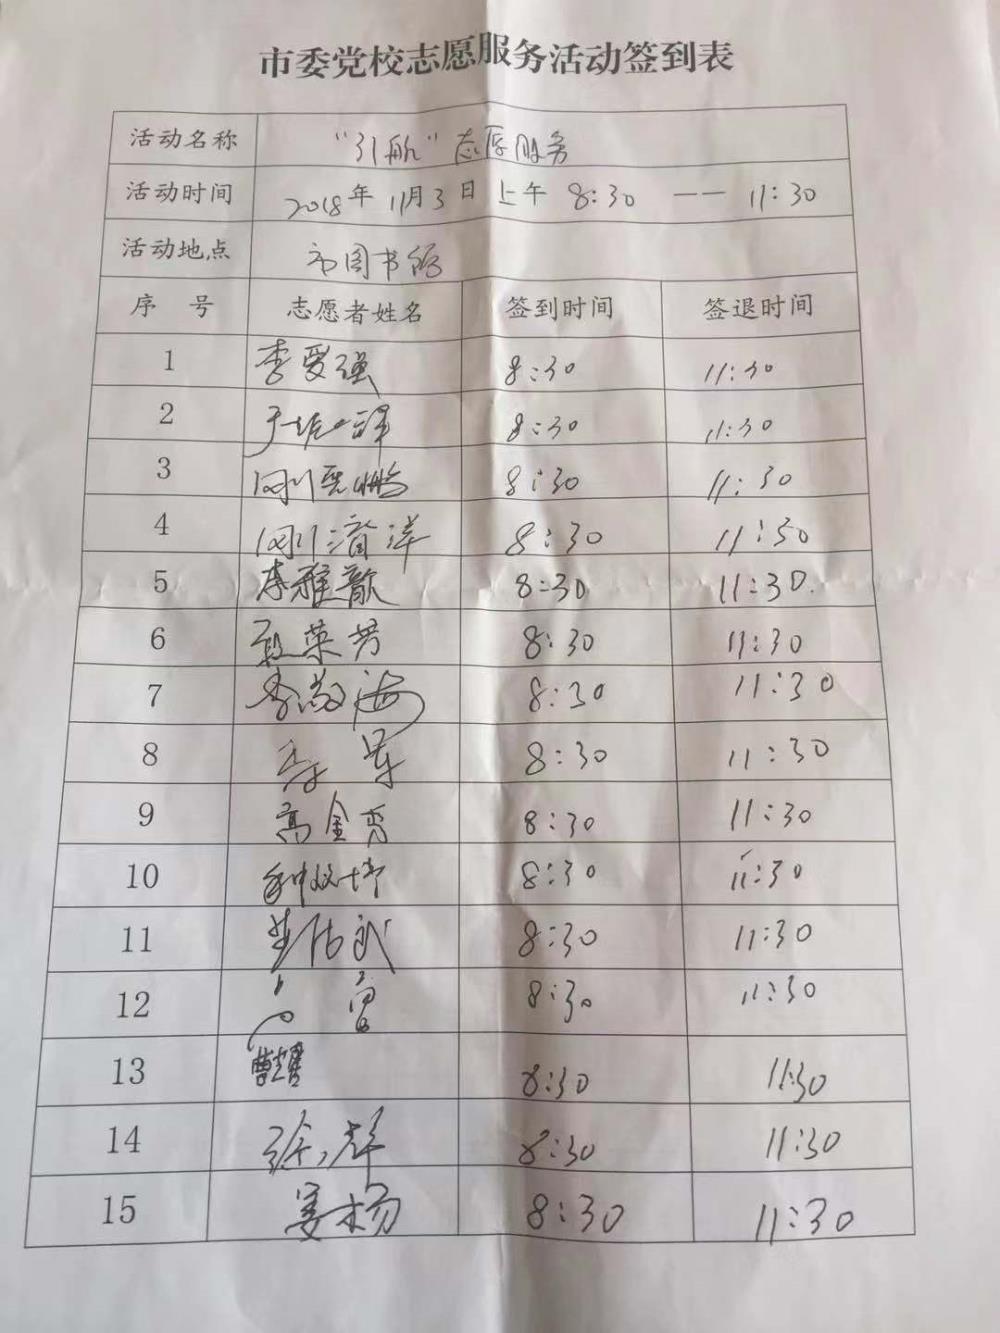 市委党校志愿服务活动签到表
活动名称 "引航"志愿服务
活动时间 2018年11月3日上午8:30——11:30
活动地点 市图书馆
序号 志愿者姓名 签到时间 签退时间
1 李爱强 8:30 11:30
2 8:30 11:30
3 8:30 11:30
4 8:30 11:30
5 李雅歆 8:30 11:30.
6 段荣芳 8:30 11:30
7 李敬海 8:30 11:30
8 8:30 11:30
9 高金秀 8:30 11:30
10 8:30 11:30
11 8:30 11:30
12 8:30 11:30
13 8:30 11:30
14 徐辉 8:30 11:30
15 姜杨 8:30 11:30